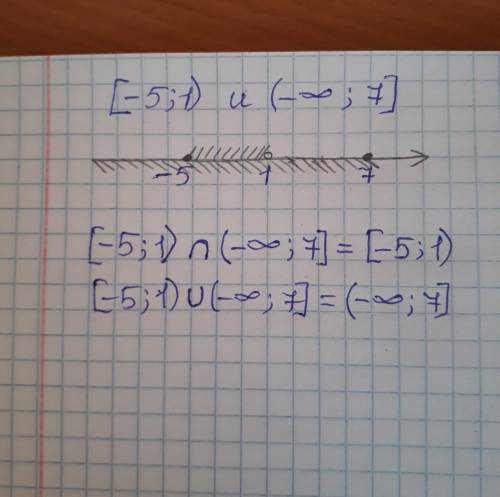 [-5;1) и (-∞; 7]
-5 1 7
[-5;1) ∩ (-∞; 7] = [-5; 1)
[-5;1) ∪ (-∞; 7] = (-∞; 7]